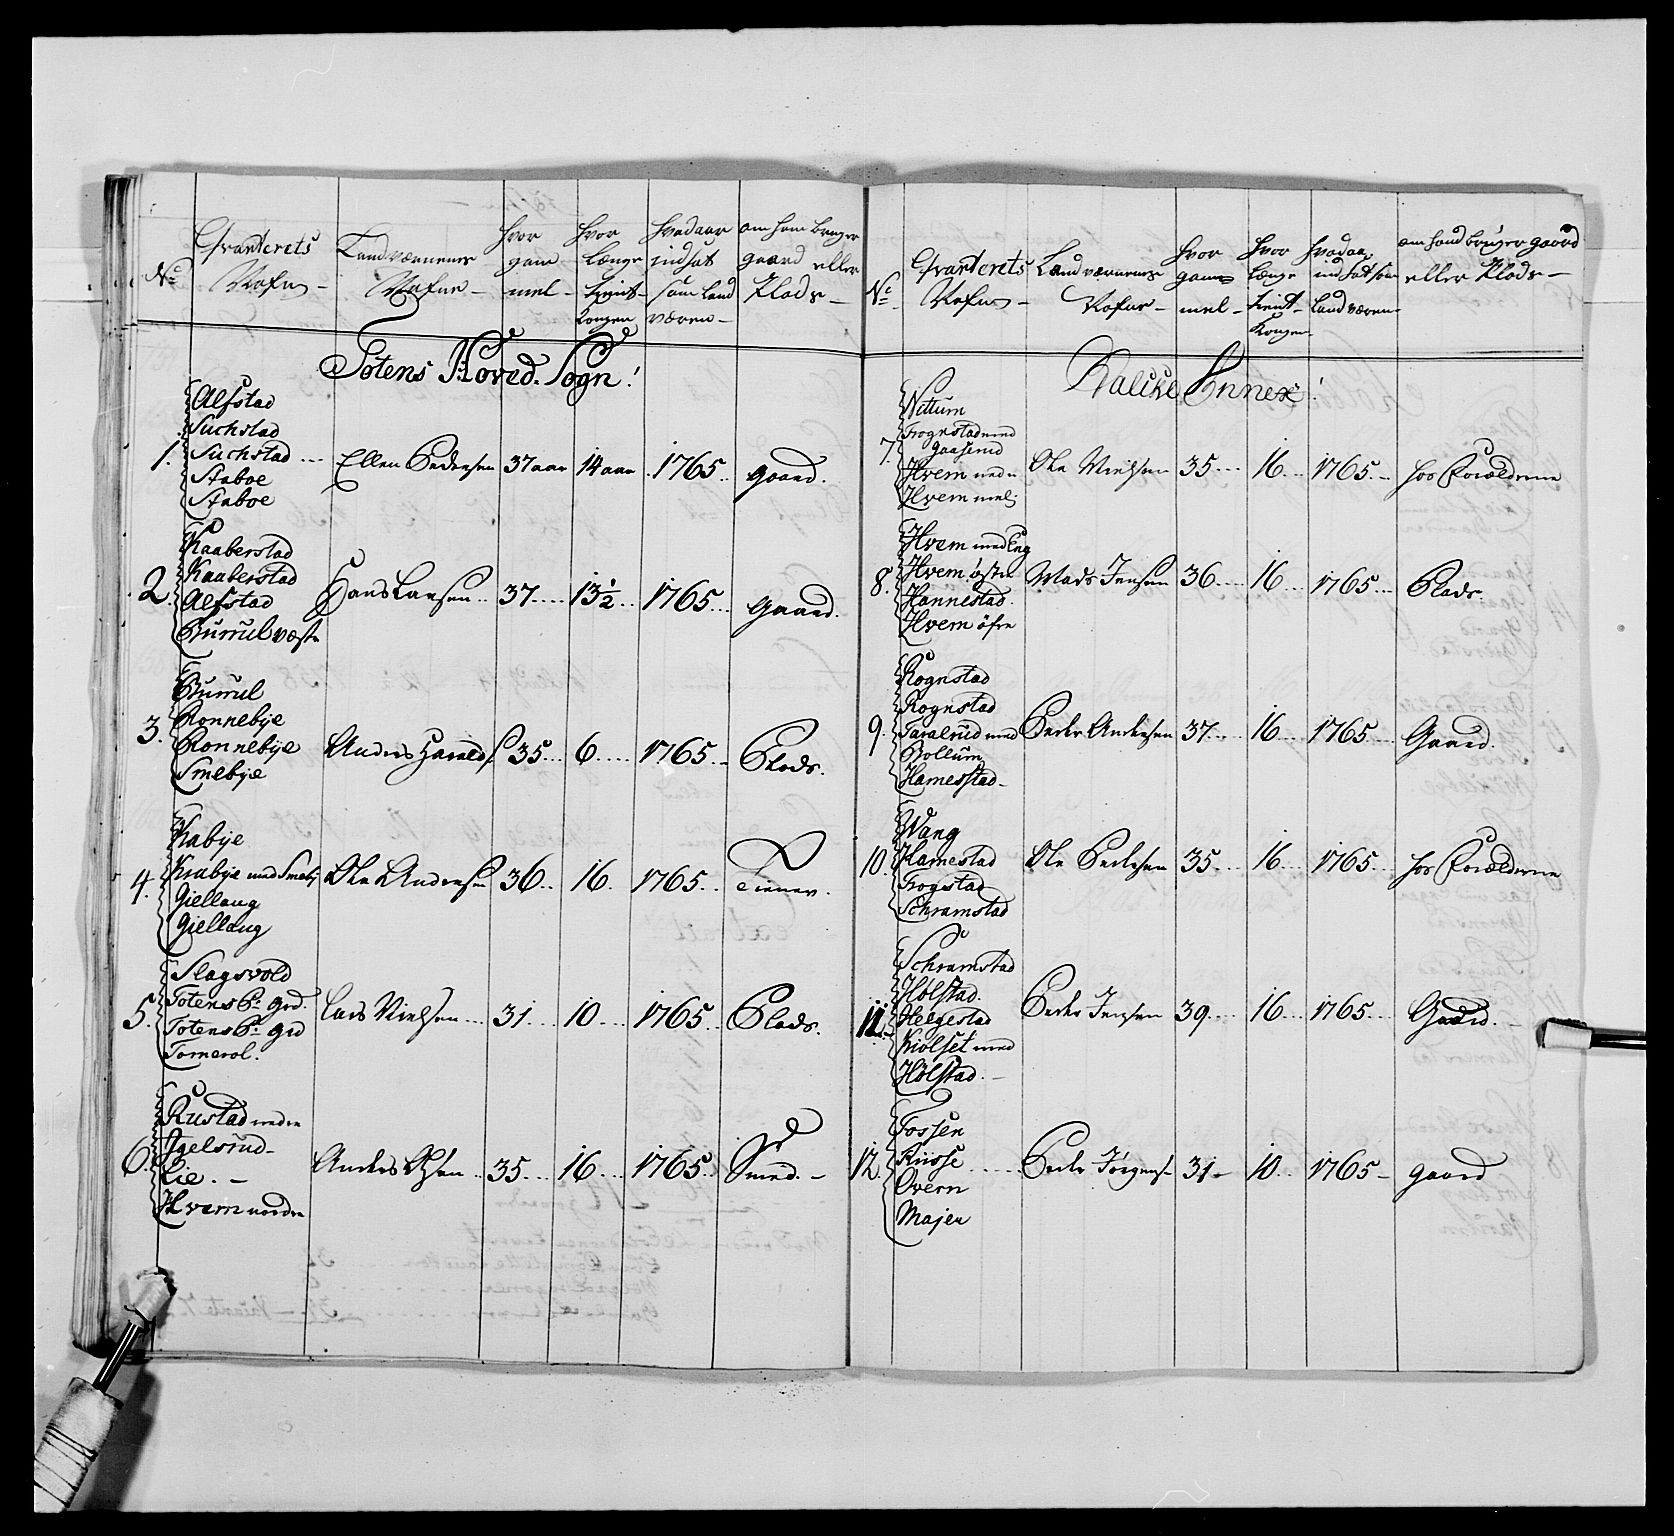 No
Qvarterets Nafn
Landværnernes Nafne
hvor gammel
hvor længe tient Kongen
hvad aar indsat som Land væren
om han bruger gaard eller Plads
Totens Hoved-Sogn!
1. Alfstad
Suchstad
Suchstad
Staboe
Staboe
Ellen Pedersen 37 aar 14 aar 1765 gaard.
2. Kaaberstad
Kaaberstad
Alfstad
Burrul væstre
Hans Larsen 37 13½ 1765 gaard.
3. Burrul
Ronnebye
Ronnebye
Smebye
Anders Harald S 35 6 1765 Plads.
4. Kabye
Krabye med Smeby
Giellaug
Giellaug
Ole Andersen 36 16 1765 Tiener.
5. Slagsvold
Totens P: grd.
Totens P: grd
Tomerol.
Lars Nielsen 31 10 1765 Plads.
6. Rustad neder
Igelsrud
Lie.
Hvem nordre
Anders Olsen 35 16 1765 Smed.
No
Qvarterets Nafn
Landværnernes Nafne
hvor gammel
hvor længe tient Kongen
hvad aar indsat som Land væren
om hand bruger gaard eller Plads
Balche Annex!
7. Nittum
Frognstad med
Gaaserud
Hvem nedre
Hvem mel:
Ole Nielsen 35 16 1765 hos Forældrene
8. Hvem med Eng
Hvem østre
Hannestad
Hvem öfre
Mads Jensen 36 16 1765 Plads.
9. Rognstad
Rognstad
Taralrud med
Bollum
Hamesstad
Peder Andersen 37 16 1765 Gaard.
10. Wang
Hamestad
Frogstad
Schramstad
Ole Pedersen 35 16 1765 hos Forældrene
11. Schramstad
Hølstad.
Helgestad
Kiølset med
Hølstad.
Peder Jensen 39 16 1765 Gaard.
12. Fossen
Riise
Overn
Majer
Peder Jørgens 31 10 1765 gaard